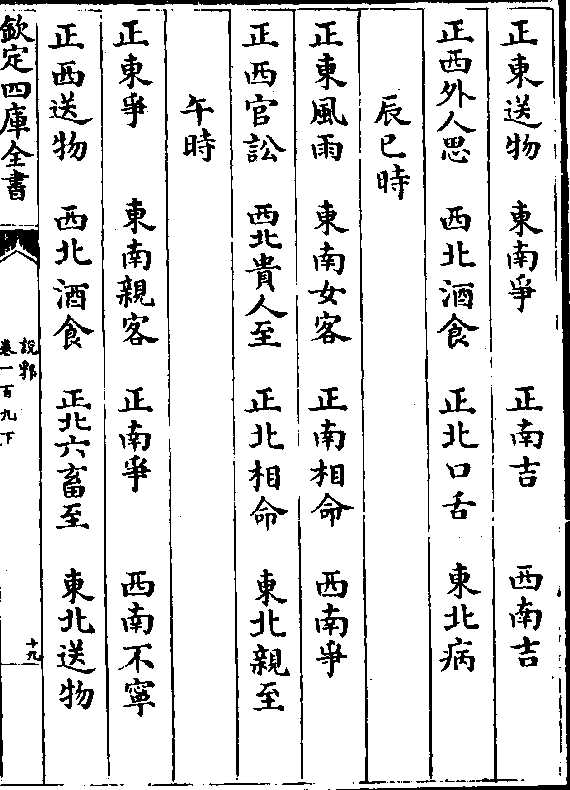 正東送物　東南爭　正南吉　西南吉
正西外人思　西北酒食　正北口舌　東北病
辰巳時
正東風雨　東南女客　正南相命　西南爭
正西官訟　西北貴人至　正北相命　東北親至
午時
正東爭　東南親客　正南爭　西南不寧
正西送物　西北酒食　正北六畜至　東北送物
欽定四庫全書
說郛
卷一百九下
十九